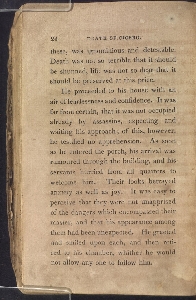 24 DEATH OF CICERO.
these, was ignominious and detestable.
Death was not so terrible that it should
be shunned, life was not so dear that it
should be preserved at this price.
He proceeded to his house with an
air of fearlessness and confidence. It was
far from certain, that it was not occupied
already by assassins, expecting and
waiting his approach; of this, however,
he testified no apprehension. As soon
as he entered the porch, his arrival was
rumoured through the building, and his
servants hurried from all quarters to
welcome him. Their looks betrayed
anxiety as well as joy. It was easy to
perceive that they were not unapprised
of the dangers which encompassed their
master, and that his appearance among
them had been unexpected. He greeted
and smiled upon each, and then reti-
red to his chamber, whither he would
not allow any one to follow him.